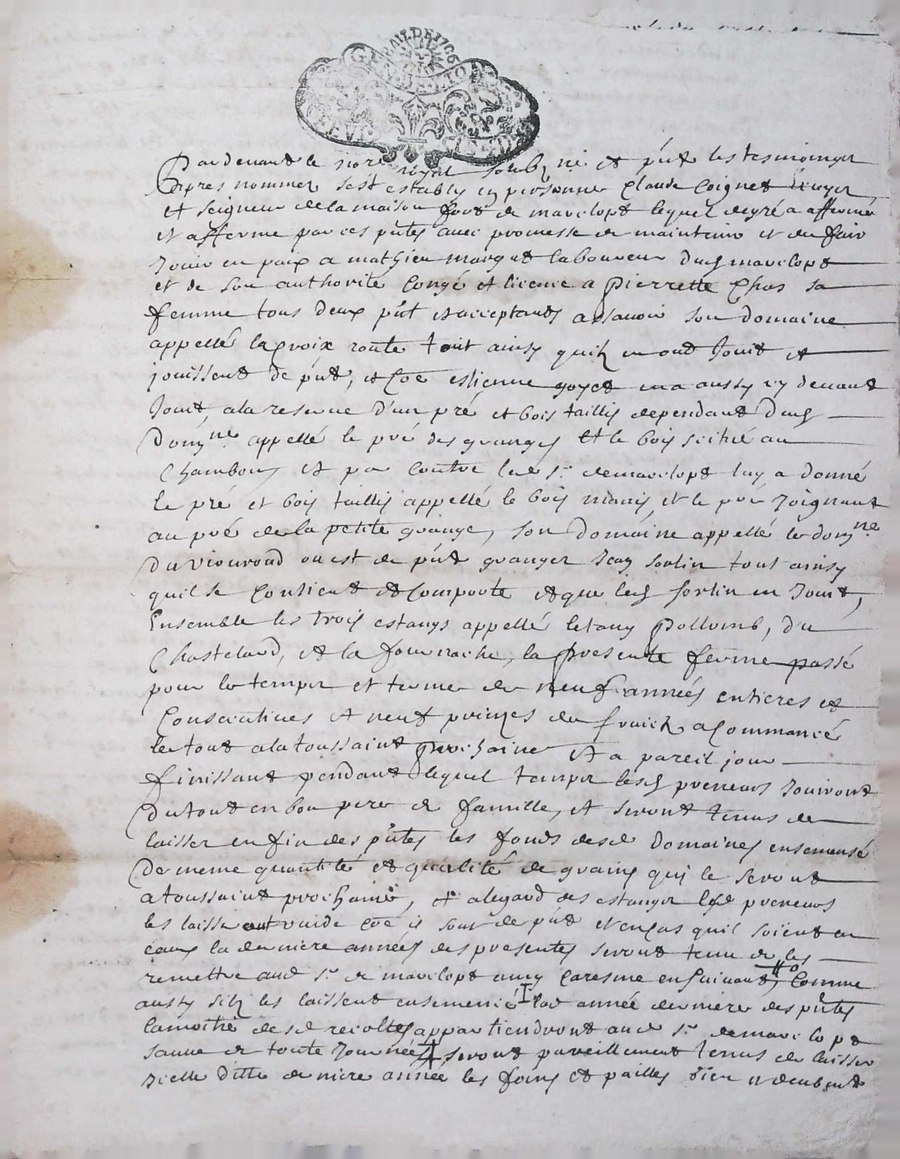 BAIL DE 1706
GEN
Pardevant le no.re royal soubz.né et p'nt les tesmoingz
Apres nommez s'est estably en personne Claude Coignet Escuyer
et seigneur de la maison fort de marclopt lequel de gré a affermé
et afferme par ces p'ntes avec promesse de maintenir et de fair
Jouir en paix a mathieu marquet laboureur dud marclopt
et de son authorité congé et licence a Pierrette Chas sa
femme tous deux p'nt et acceptants assavoir son domaine
appellé la croix route tout ainsy quilz en ont Jouit et
jouissent de p'nt, et Coe estienne goyet en a aussy cy devant
Jouit, a la reserve d'un pré et bois taillis dependant dud
Dom.ne appellé le pré des granges et le bois scitué au
Chambon, et par contre led s.r de marclopt luy a donné
le pré et bois taillis appellé le bois et le pré Joignant
au pré de la petite grange, son domaine appellé le dom.ne
Du viouroud ou est de p'nt granger Jean sorlin tout ainsy
quil se Contient et Comporte et que led sorlin en Jouit,
Ensemble les trois estangs appellé letang Pollomb, du
Chastelard, et la fournache, la presente ferme passé
pour le temps et terme de neuf années entieres et
Consecutives et neuf prinzes de fruictz a Commancé
le tout a la toussaint prochaine et a pareil jour
finissant pendant lequel temps lesd preneurs Jouiront
Du tout en bon pere de famille, et seront tenus de
laisser en fin des p'ntes les fonds desd Domaines ensemansé
De meme quantité et qualité de grains qui le seront
a toussaint prochaine, et a legard des estangs lesd preneurs
les laisseront vuide coe is sont de p'nt et en cas quil soient en
eaux la derniere années des presentes seront tenu de les
remettre aud s.r de marclopt au Caresme ensuivant, Comme
aussy silz les laissent ensemencé lad année derniere des p'ntes
la moitié desd recoltes appartiendront aud s.r de marclopt
sauve de toute Journées seront pareillement tenus de laisser
Icelle ditte derniere année les foins et pailles bien et deubment